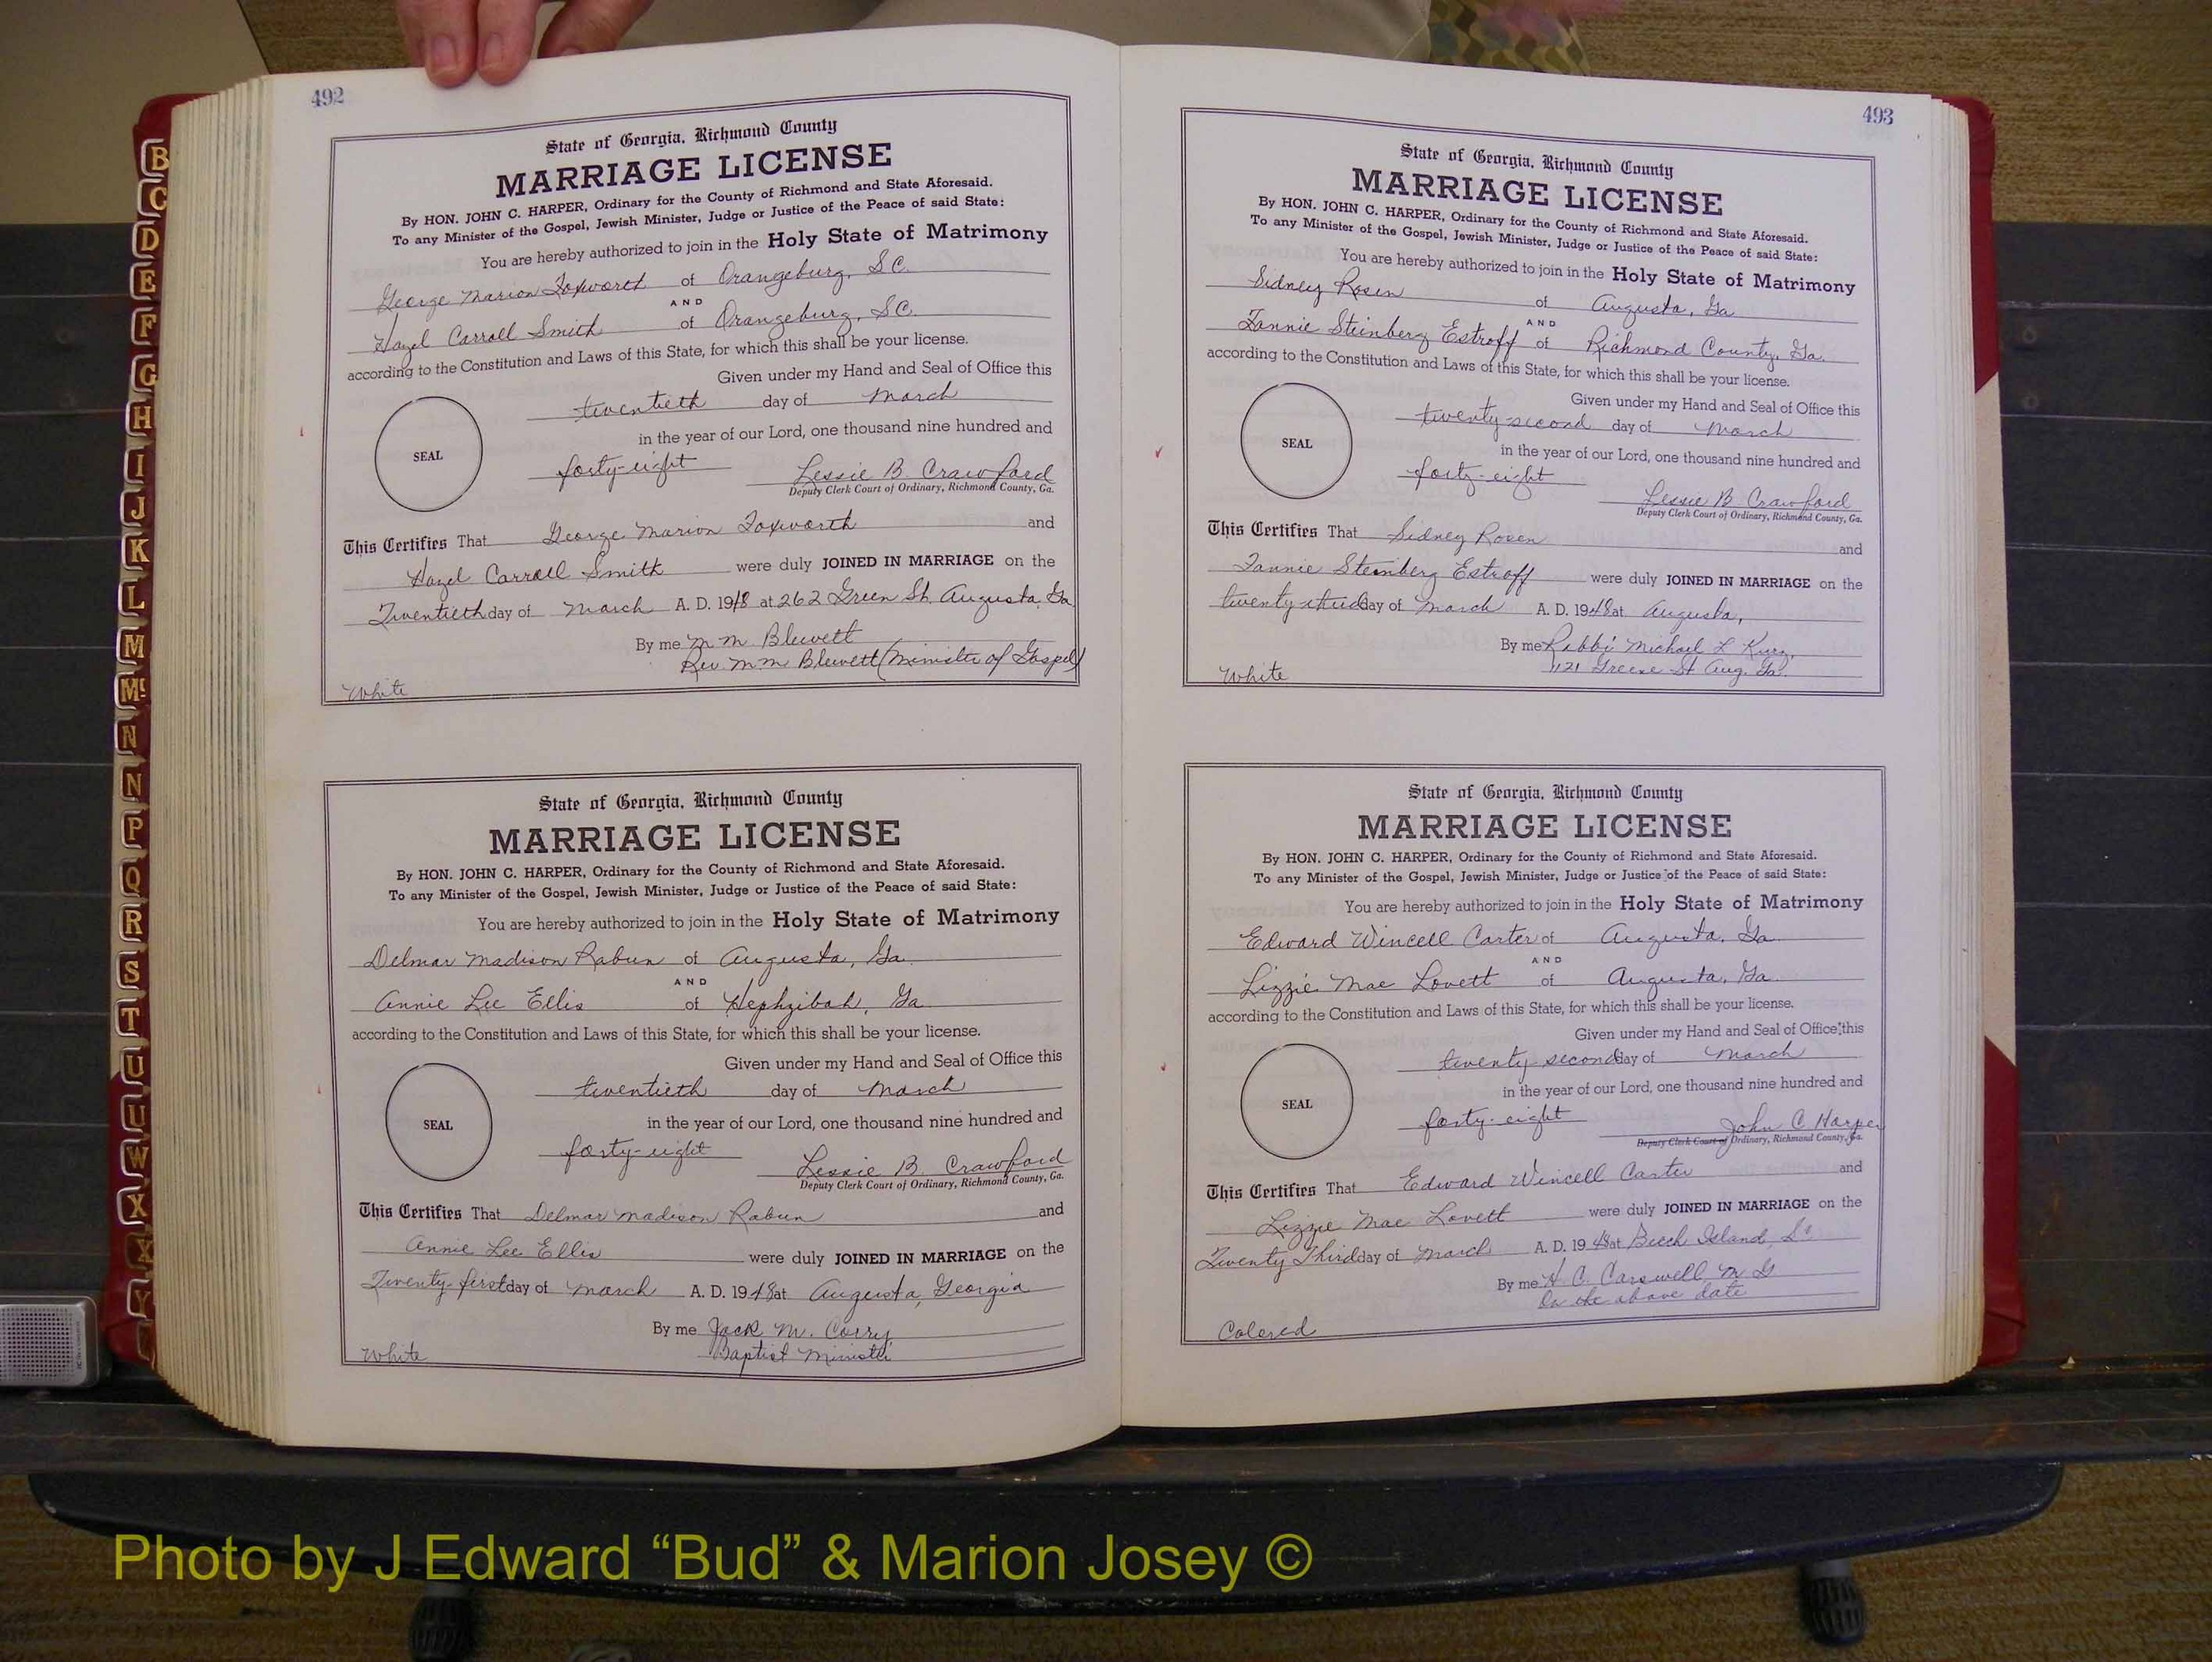 492
State of Georgia, Richmond County
MARRIAGE LICENSE
By HON. JOHN C. HARPER, Ordinary for the County of Richmond and State Aforesaid.
To any Minister of the Gospel, Jewish Minister, Judge or Justice of the Peace of said State:
You are hereby authorized to join in the Holy State of Matrimony
George Marion Foxworth of Orangeburg, S.C.
AND
Hazel Carroll Smith of Orangeburg, S.C.
according to the Constitution and Laws of this State, for which this shall be your license.
Given under my Hand and Seal of Office this
twentieth day of March
in the year of our Lord, one thousand nine hundred and
SEAL
forty-eight Lessie B. Crawford
Deputy Clerk Court of Ordinary, Richmond County, Ga.
This Certifies That George Marion Foxworth and
Hazel Carroll Smith were duly JOINED IN MARRIAGE on the
Twentieth day of March A. D. 1948 at 262 Green St. Augusta, Ga
By me M M Blewett
Rev. M M Blewett (Minister of Gospel)
White
State of Georgia, Richmond County
MARRIAGE LICENSE
By HON. JOHN C. HARPER, Ordinary for the County of Richmond and State Aforesaid.
To any Minister of the Gospel, Jewish Minister, Judge or Justice of the Peace of said State:
You are hereby authorized to join in the Holy State of Matrimony
Delmar Madison Rabun of Augusta, Ga.
AND
Annie Lee Ellis of Hephzibah, Ga
according to the Constitution and Laws of this State, for which this shall be your license.
Given under my Hand and Seal of Office this
twentieth day of March
in the year of our Lord, one thousand nine hundred and
SEAL
forty-eight Lessie B. Crawford
Deputy Clerk Court of Ordinary, Richmond County, Ga.
This Certifies That Delmar Madison Rabun and
Annie Lee Ellis were duly JOINED IN MARRIAGE on the
Twenty-first day of March A. D. 1948 at Augusta, Georgia
By me Jack M. Corry,
Baptist Minister
White
493
State of Georgia, Richmond County
MARRIAGE LICENSE
By HON. JOHN C. HARPER, Ordinary for the County of Richmond and State Aforesaid.
To any Minister of the Gospel, Jewish Minister, Judge or Justice of the Peace of said State:
You are hereby authorized to join in the Holy State of Matrimony
Sidney Rosen of Augusta, Ga
AND
Fannie Steinberg Estroff of Richmond County, Ga.
according to the Constitution and Laws of this State, for which this shall be your license.
Given under my Hand and Seal of Office this
twenty-second day of March
in the year of our Lord, one thousand nine hundred and
SEAL
forty-eight
Lessie B. Crawford
Deputy Clerk Court of Ordinary, Richmond County, Ga.
This Certifies That Sidney Rosen and
Fannie Steinberg Estroff were duly JOINED IN MARRIAGE on the
twenty-third day of March A. D. 1948 at Augusta,
By me Rabbi Michael L
1121 Greene St Aug. Ga.
White
State of Georgia, Richmond County
MARRIAGE LICENSE
By HON. JOHN C. HARPER, Ordinary for the County of Richmond and State Aforesaid.
To any Minister of the Gospel, Jewish Minister, Judge or Justice of the Peace of said State:
You are hereby authorized to join in the Holy State of Matrimony
Edward Wincell Carter of Augusta, Ga
AND
Lizzie Mae Lovett of Augusta, Ga
according to the Constitution and Laws of this State, for which this shall be your license.
Given under my Hand and Seal of Office this
twenty second day of March
in the year of our Lord, one thousand nine hundred and
SEAL
forty-eight John C. Harper
Deputy Clerk Court of Ordinary, Richmond County, Ga.
This Certifies That Edward Wincell Carter and
Lizzie Mae Lovett were duly JOINED IN MARRIAGE on the
Twenty Third day of March A. D. 1948 at Beech Island, S.C.
By me H. C. Carswell, M G
On the above date
Colored
B
C
D
E
F
G
H
I
J
K
L
M
Mc
N
N
P
Q
R
S
T
U
U
W
X
X
Y
Photo by J Edward “Bud” & Marion Josey ©